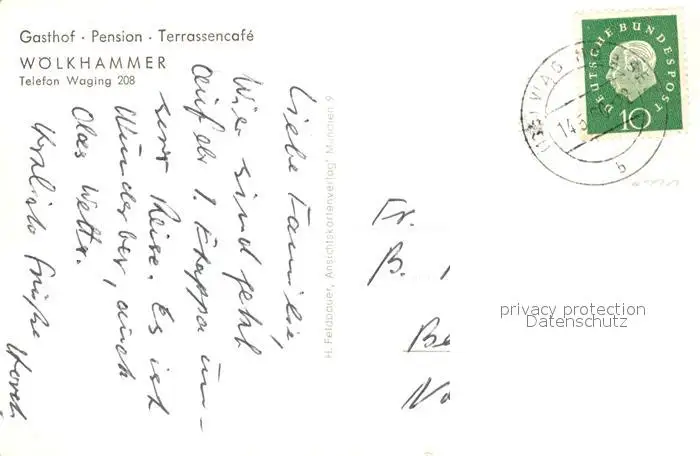 Gasthof · Pension · Terrassencafé
WÖLKHAMMER
Telefon Waging 208
Liebe Familie,
Wir sind jetzt
auf der 1. Etappe un-
serer Reise. Es ist
Wunderbar, auch
das Wetter.
Herzliche Grüße
H. Feldbauer, Ansichtskartenverlag' München 9
Fr.
B.
Be
No
DEUTSCHE BUNDESPOST
10
WAG
14.5
b
privacy protection
Datenschutz